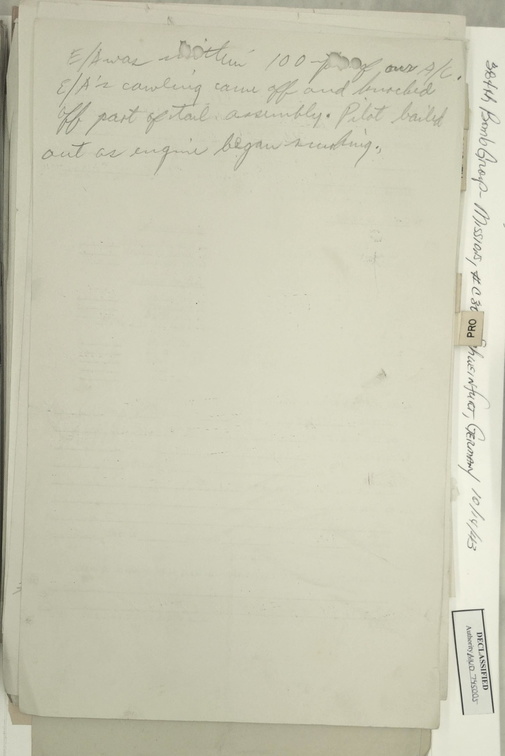 E/A was within 100 of our A/C.
E/A's cowling came off and knocked
off part of tail assembly. Pilot bailed
out as engine began smoking.
384th Bomb Group - Mission, Schweinfurt, Germany 10/14/43
PRO
DECLASSIFIED
Authority NND 745005